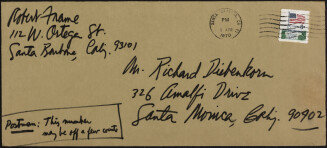 Robert Frame
112 W. Ortega St.
Santa Barbara, Calif. 93101
PM
Mr. Richard Diebenkorn
326 Amalfi Drive
Santa Monica, Calif. 90902
Postman: This number
may be off a few units